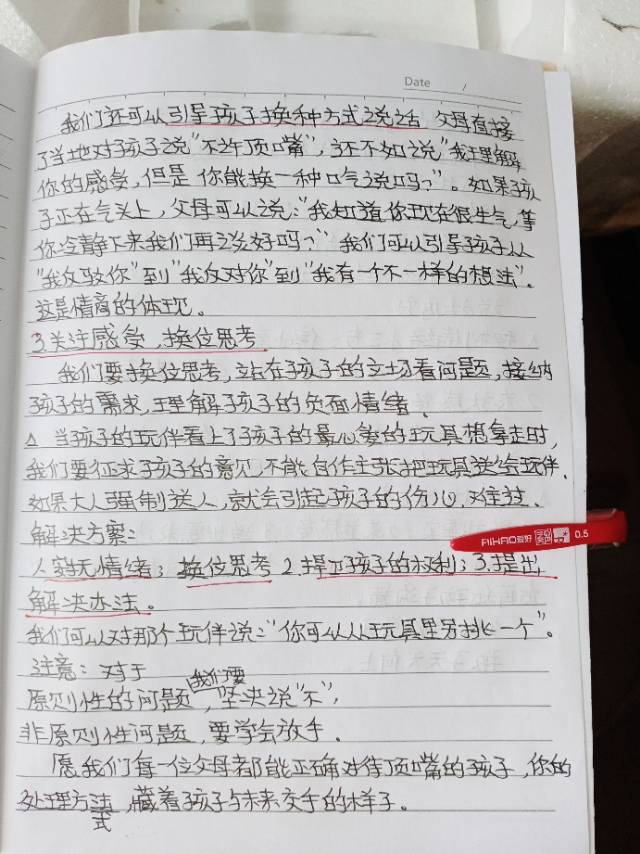 Date /
我们还可以引导孩子换种方式说话 父母直接
了当地对孩子说"不许顶嘴",还不如说"我理解
你的感受,但是你能换一种口气说吗?"。如果孩
子正在气头上,父母可以说:"我知道你现在很生气,等
你冷静下来我们再谈好吗?"我们可以引导孩子从
"我反驳你"到"我反对你"到"我有一个不一样的想法"。
这是情商的体现。
3.关注感受,换位思考
我们要换位思考,站在孩子的立场看问题,接纳
孩子的需求,理解孩子的负面情绪.
△ 当孩子的玩伴看上了孩子的最心爱的玩具想拿走时,
我们要征求孩子的意见,不能自作主张把玩具送给玩伴.
如果大人强制送人,就会引起孩子的伤心,难过、
解决方案:
情绪;换位思考 2.捍卫孩子的权利;3.提出
解决办法。
我们可以对那个玩伴说:"你可以从玩具里另挑一个"。
注意:对于
原则性的问题,我们要"坚决说"不",
非原则性问题,要学会放手.
愿我们每一位父母都能正确对待顶嘴的孩子,你的
处理方法式,藏着孩子与未来交手的样子。
AIHAO 爱好 0.5